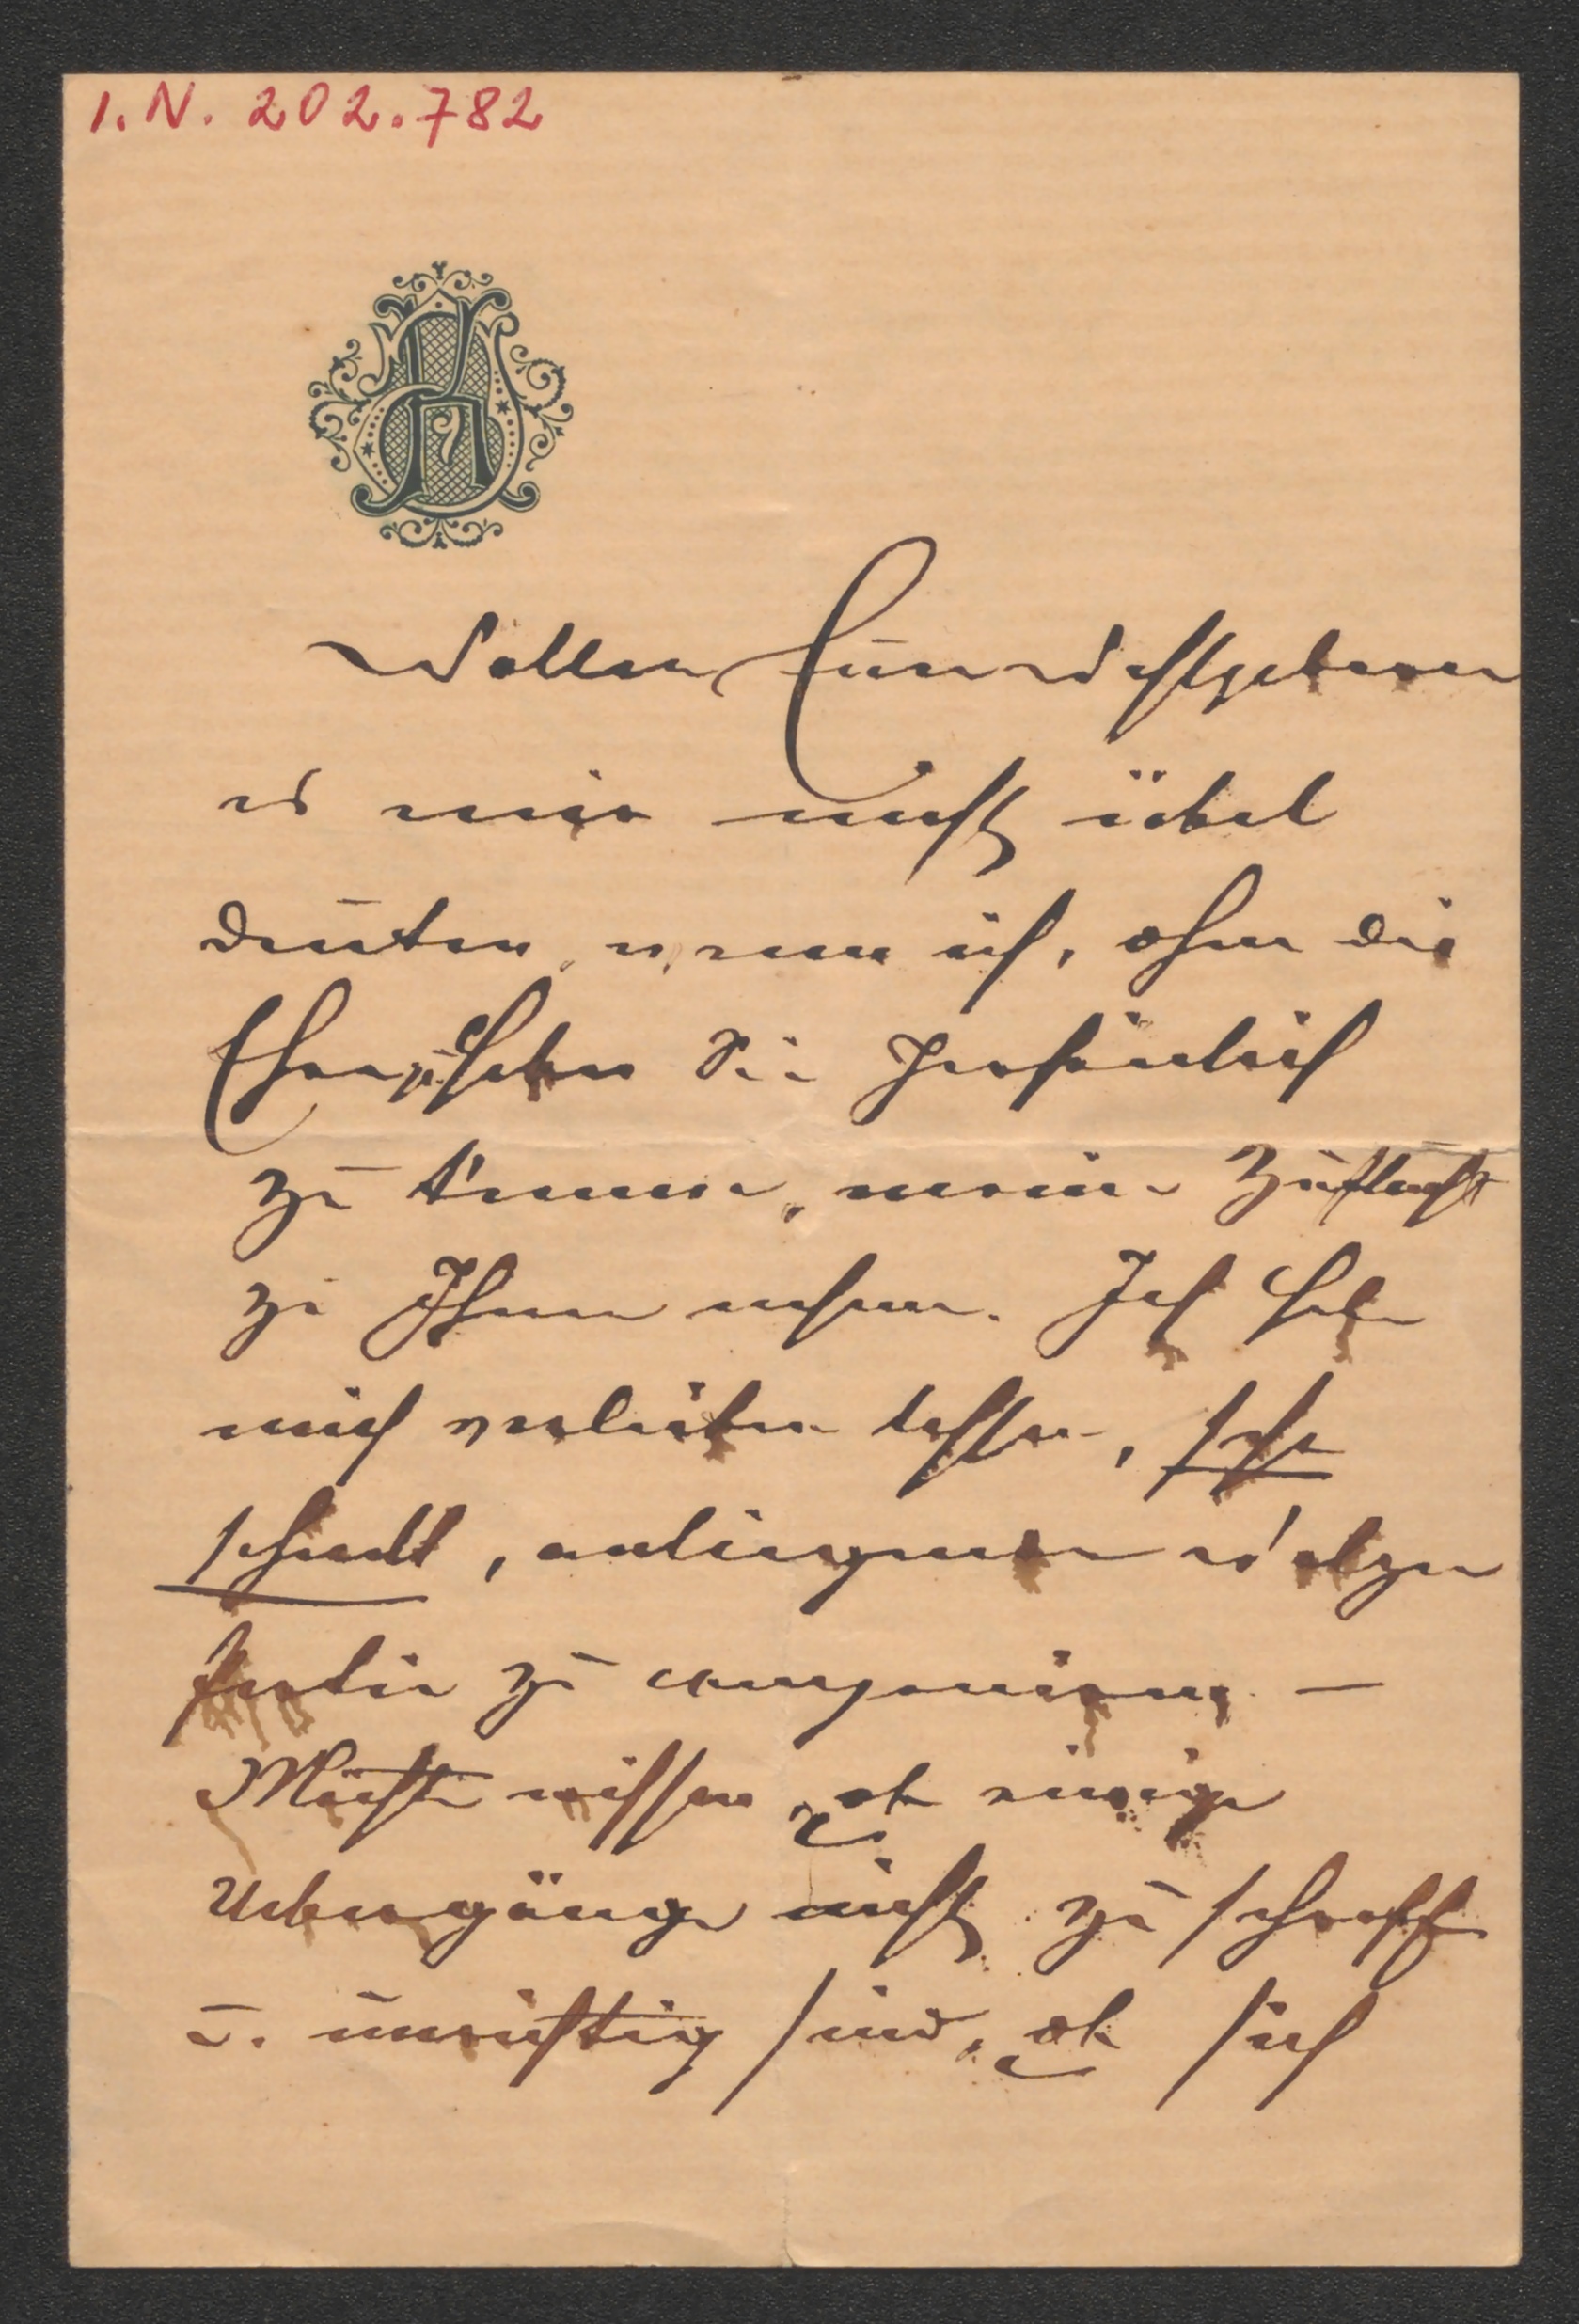 I.N. 202.782
Wollen Euer Wohlgeboren
es mir nicht übel
deuten, wenn ich, ohne die
Ehre zu haben Sie persönlich
zu kennen, meine Zuflucht
zu Ihnen nehme. Ich habe
mich verleiten lassen, sehr
schnell, anliegende
zu componieren —
Möchte wissen, ob einige
Uebergänge nicht zu schroff
u. unrichtig sind, ob sich